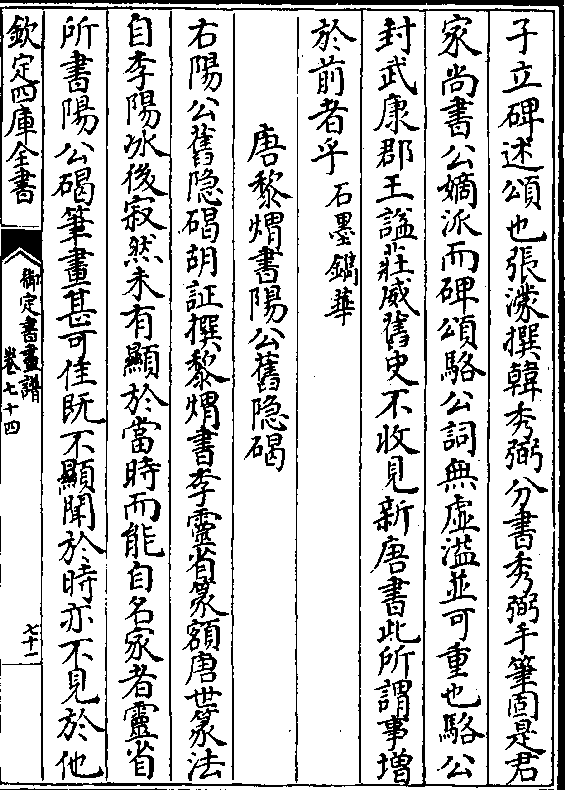 子立碑述頌也張濛撰韓秀弼分書秀弼手筆固是君
家尚書公嫡派而碑頌駱公詞無虛溢並可重也駱公
封武康郡王謚莊威舊史不收見新唐書此所謂事增
於前者乎 石墨鐫華
唐黎煟書陽公舊隐碣
右陽公舊隐碣胡証撰黎煟書李靈省篆額唐世篆法
自李陽冰後寂然未有顯於當時而能自名家者靈省
所書陽公碣筆畫甚可佳既不顯聞於時亦不見於他
欽定四庫全書
御定書畫譜
卷七十四
七十二